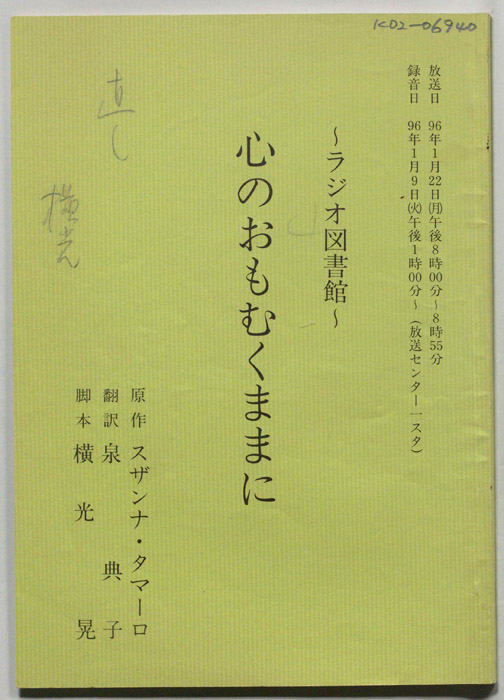 K02-06940
放送日 96年1月22日㈪午後8時00分~8時55分
録音日 96年1月9日㈫午後1時00分~(放送センター一スタ)
~ラジオ図書館~
心のおもむくままに
原作 スザンナ・タマーロ
翻訳 泉 典子
脚本 横光 晃
直し
横光